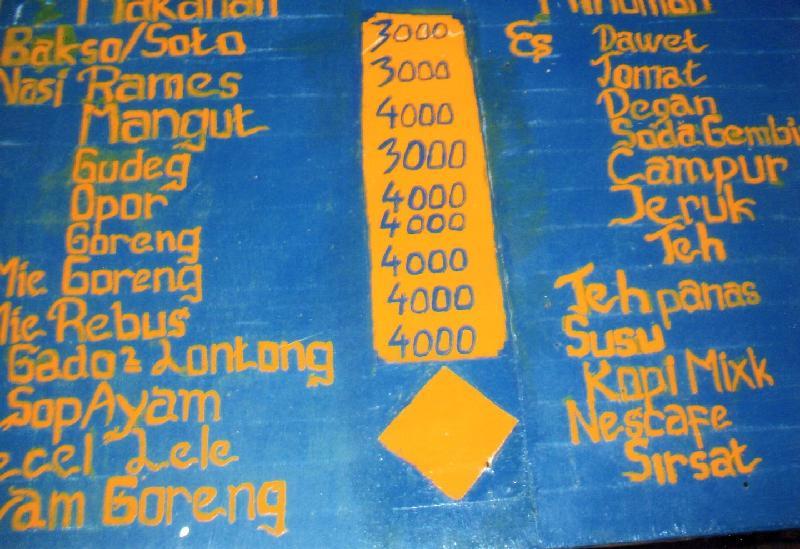 Makanan
Bakso/Soto
Nasi Rames
Mangut
Gudeg
Opor
Goreng
Mie Goreng
Mie Rebus
Gado2 Lontong
Sop Ayam
ecel Lele
yam Goreng
3000
3000
4000
3000
4000
4000
4000
4000
4000
Minuman
Es Dawet
Tomat
Degan
Soda Gembi
Campur
Jeruk
Teh
Teh panas
Susu
Kopi Mixk
Nescafe
Sirsat